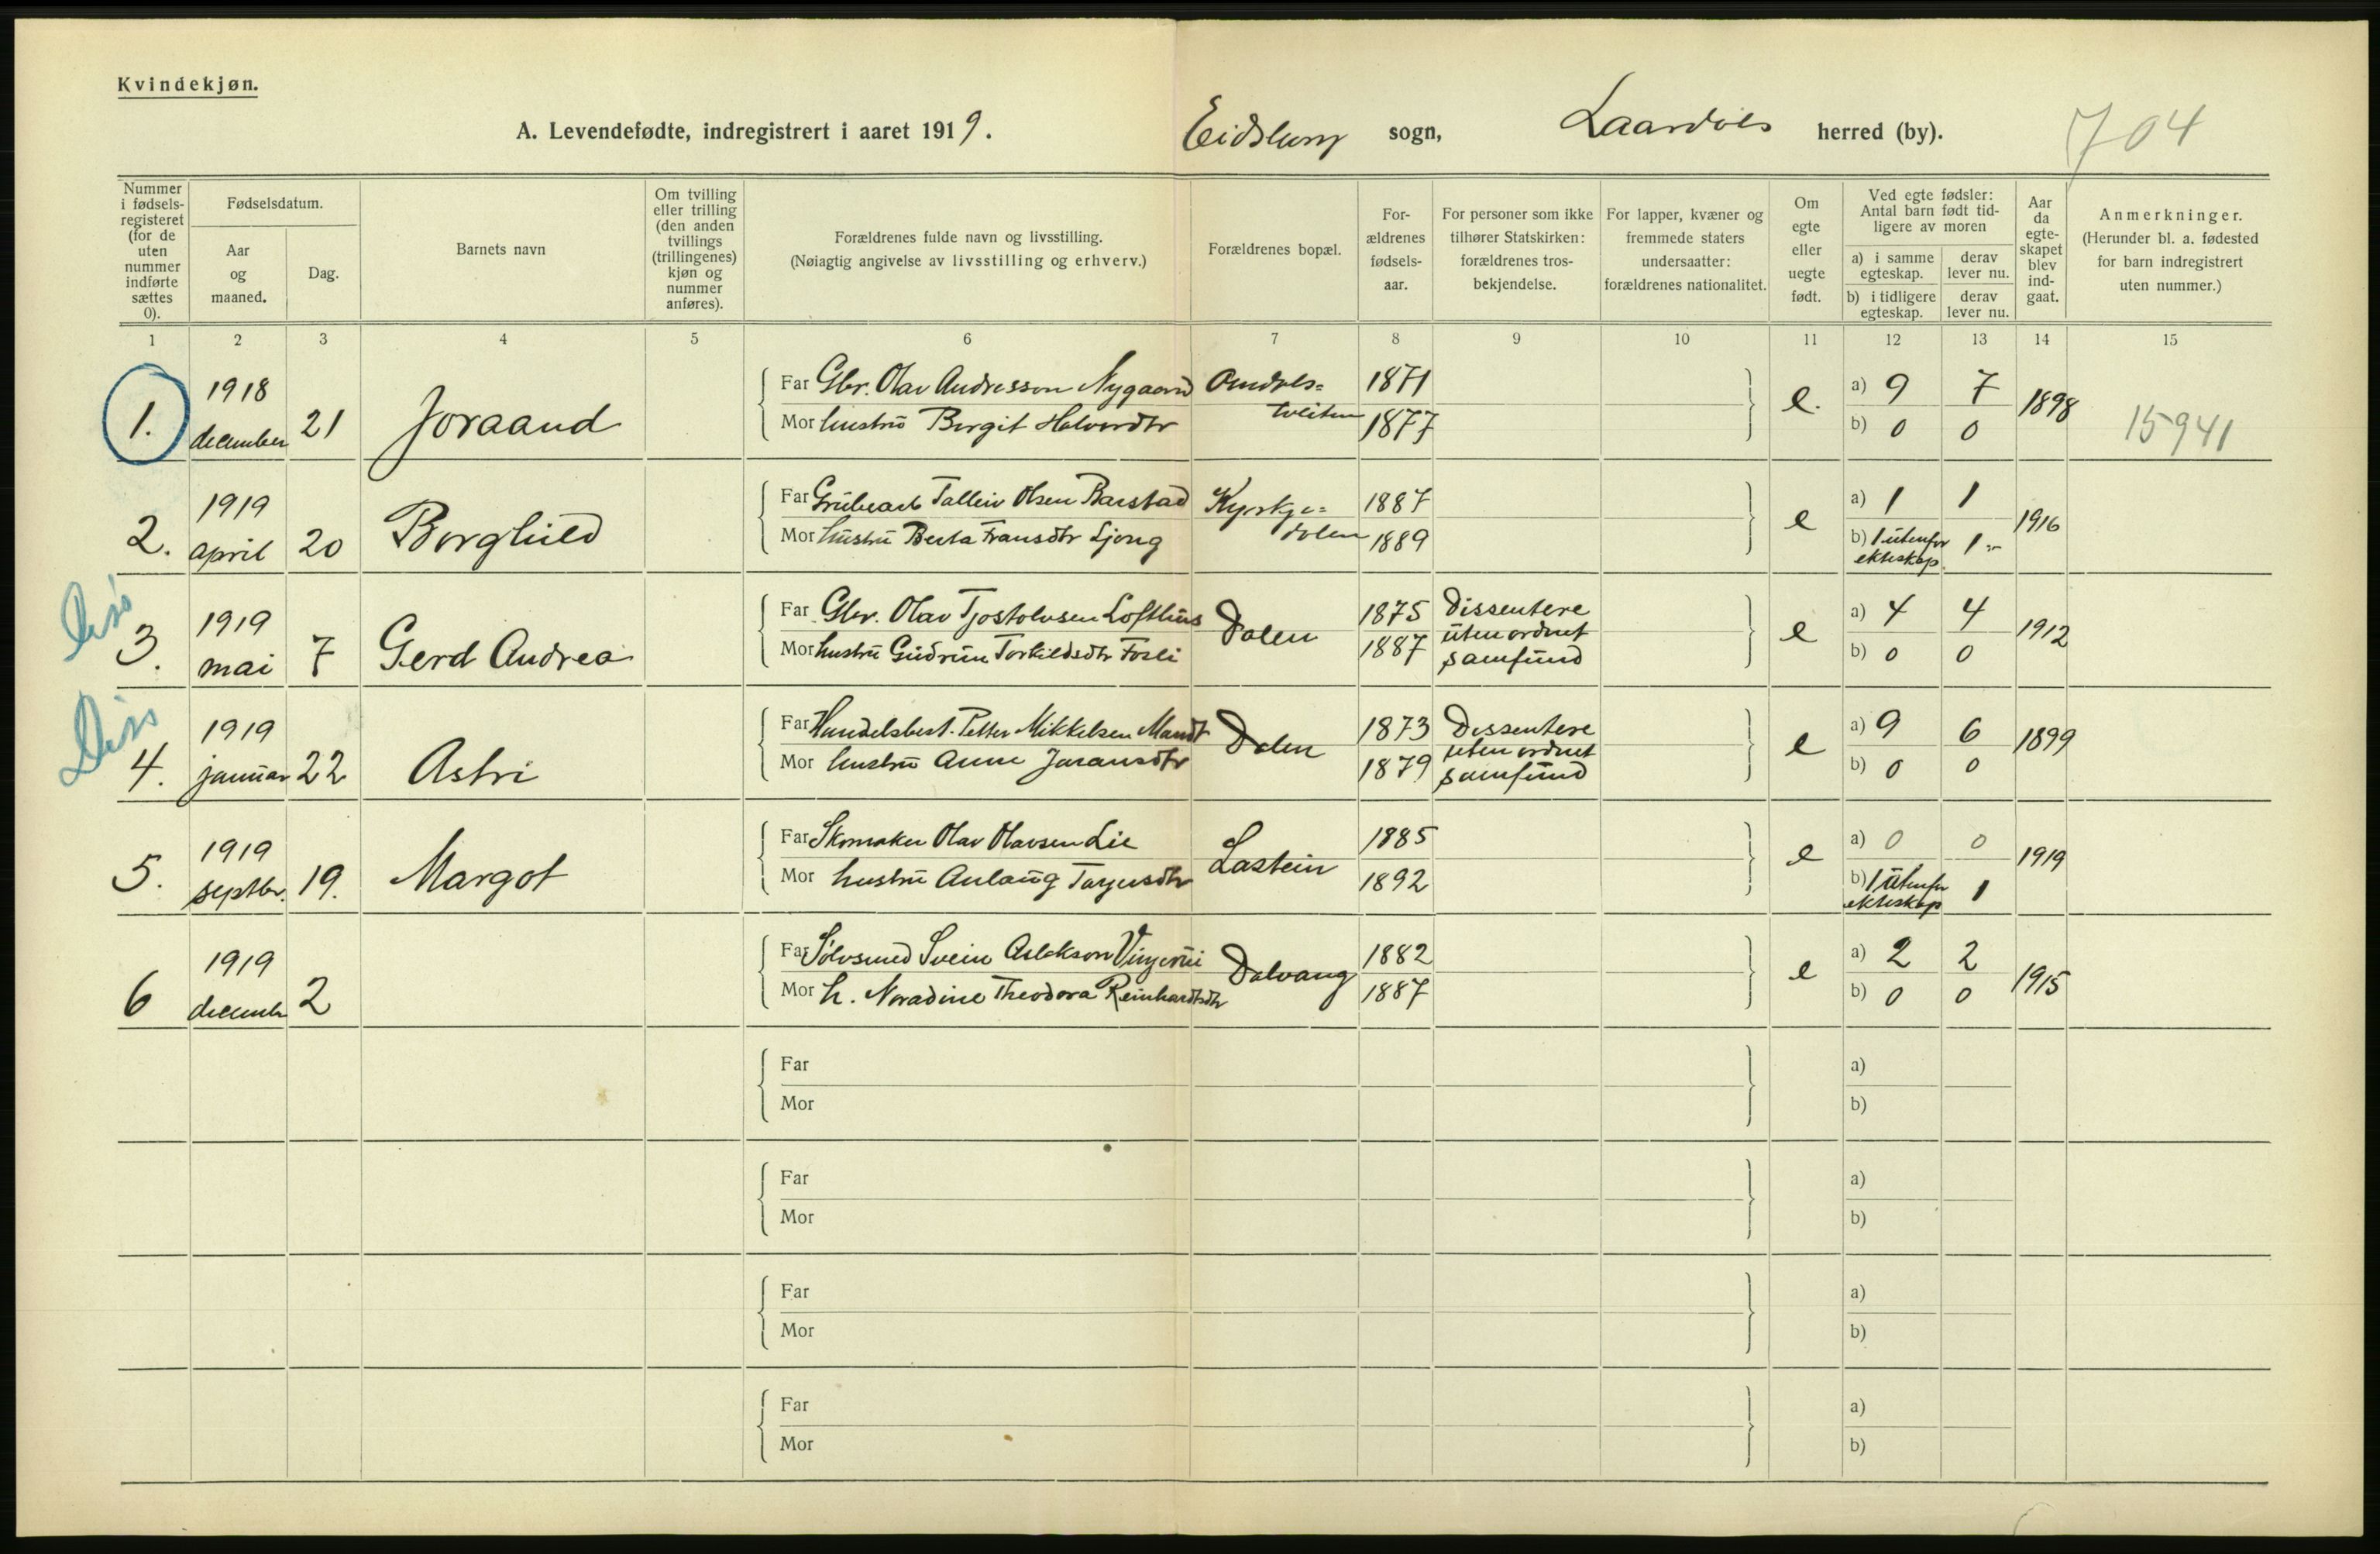 Kvindekjøn.
A. Levendefødte, indregistrert i aaret 1919. Eidsborg sogn, Laardals herred (by). 704
Nummer i fødselsregisteret (for de uten nummer indførte sættes 0).
Fødselsdatum.
Aar og maaned.
Dag.
Barnets navn
Om tvilling eller trilling (den anden tvillings (trillingenes) kjøn og nummer anføres).
Forældrenes fulde navn og livsstilling.
(Nøiagtig angivelse av livsstilling og erhverv.)
Forældrenes bopæl.
Forældrenes fødselsaar.
For personer som ikke tilhører Statskirken: forældrenes trosbekjendelse.
For lapper, kvæner og fremmede staters undersaatter: forældrenes nationalitet.
Om egte eller uegte født.
Ved egte fødsler: Antal barn født tidligere av moren
a) i samme egteskap.
derav lever nu.
b) i tidligere egteskap.
derav lever nu.
Aar da egteskapet blev indgaat.
Anmerkninger.
(Herunder bl. a. fødested for barn indregistrert uten nummer.)
1 2 3 4 5 6 7 8 9 10 11 12 13 14 15
1. 1918 december 21 Joraand
Far Gbr. Olav Andresson Nygaard
Mor hustru Borgit Halvordtr
Amdalstveiten 1871 1877 e. a) 9 7 b) 0 0 1898 15941
2. 1919 april 20 Borghild
Far Grubearb Talleiv Olsen Barstad
Mor hustru Berta Fransdtr Ljong
Kyrkjedalen 1887 1889 e a) 1 1 b) 1 utenfor ekteskap 1 1916
Diss
3. 1919 mai 7 Gerd Andrea
Far Gbr. Olav Tjostolvsen Lofthus
Mor hustru Gudrun Torkildsdtr Fosli
Dalen 1875 1887 Dissentere uten ordnet samfund e a) 4 4 b) 0 0 1912
Diss
4. 1919 januar 22 Astri
Far Handelsbest. Petter Mikkelsen Mandt
Mor hustru Anne Jaransdtr
Dalen 1873 1879 Dissentere uten ordnet samfund e a) 9 6 b) 0 0 1899
5. 1919 septbr. 19. Margot
Far Skomaker Olav Olavsen Lie
Mor hustru Anlaug Tarjeisdtr
Lastein 1885 1892 e a) 0 0 b) 1 utenfor ekteskap 1 1919
6 1919 decemb 2
Far Sølvsmed Svein Aslakson Vinjerui
Mor h. Noradine Theodora Reinhardtsdtr
Dalvang 1882 1887 e a) 2 2 b) 0 0 1915
Far a)
Mor b)
Far a)
Mor b)
Far a)
Mor b)
Far a)
Mor b)